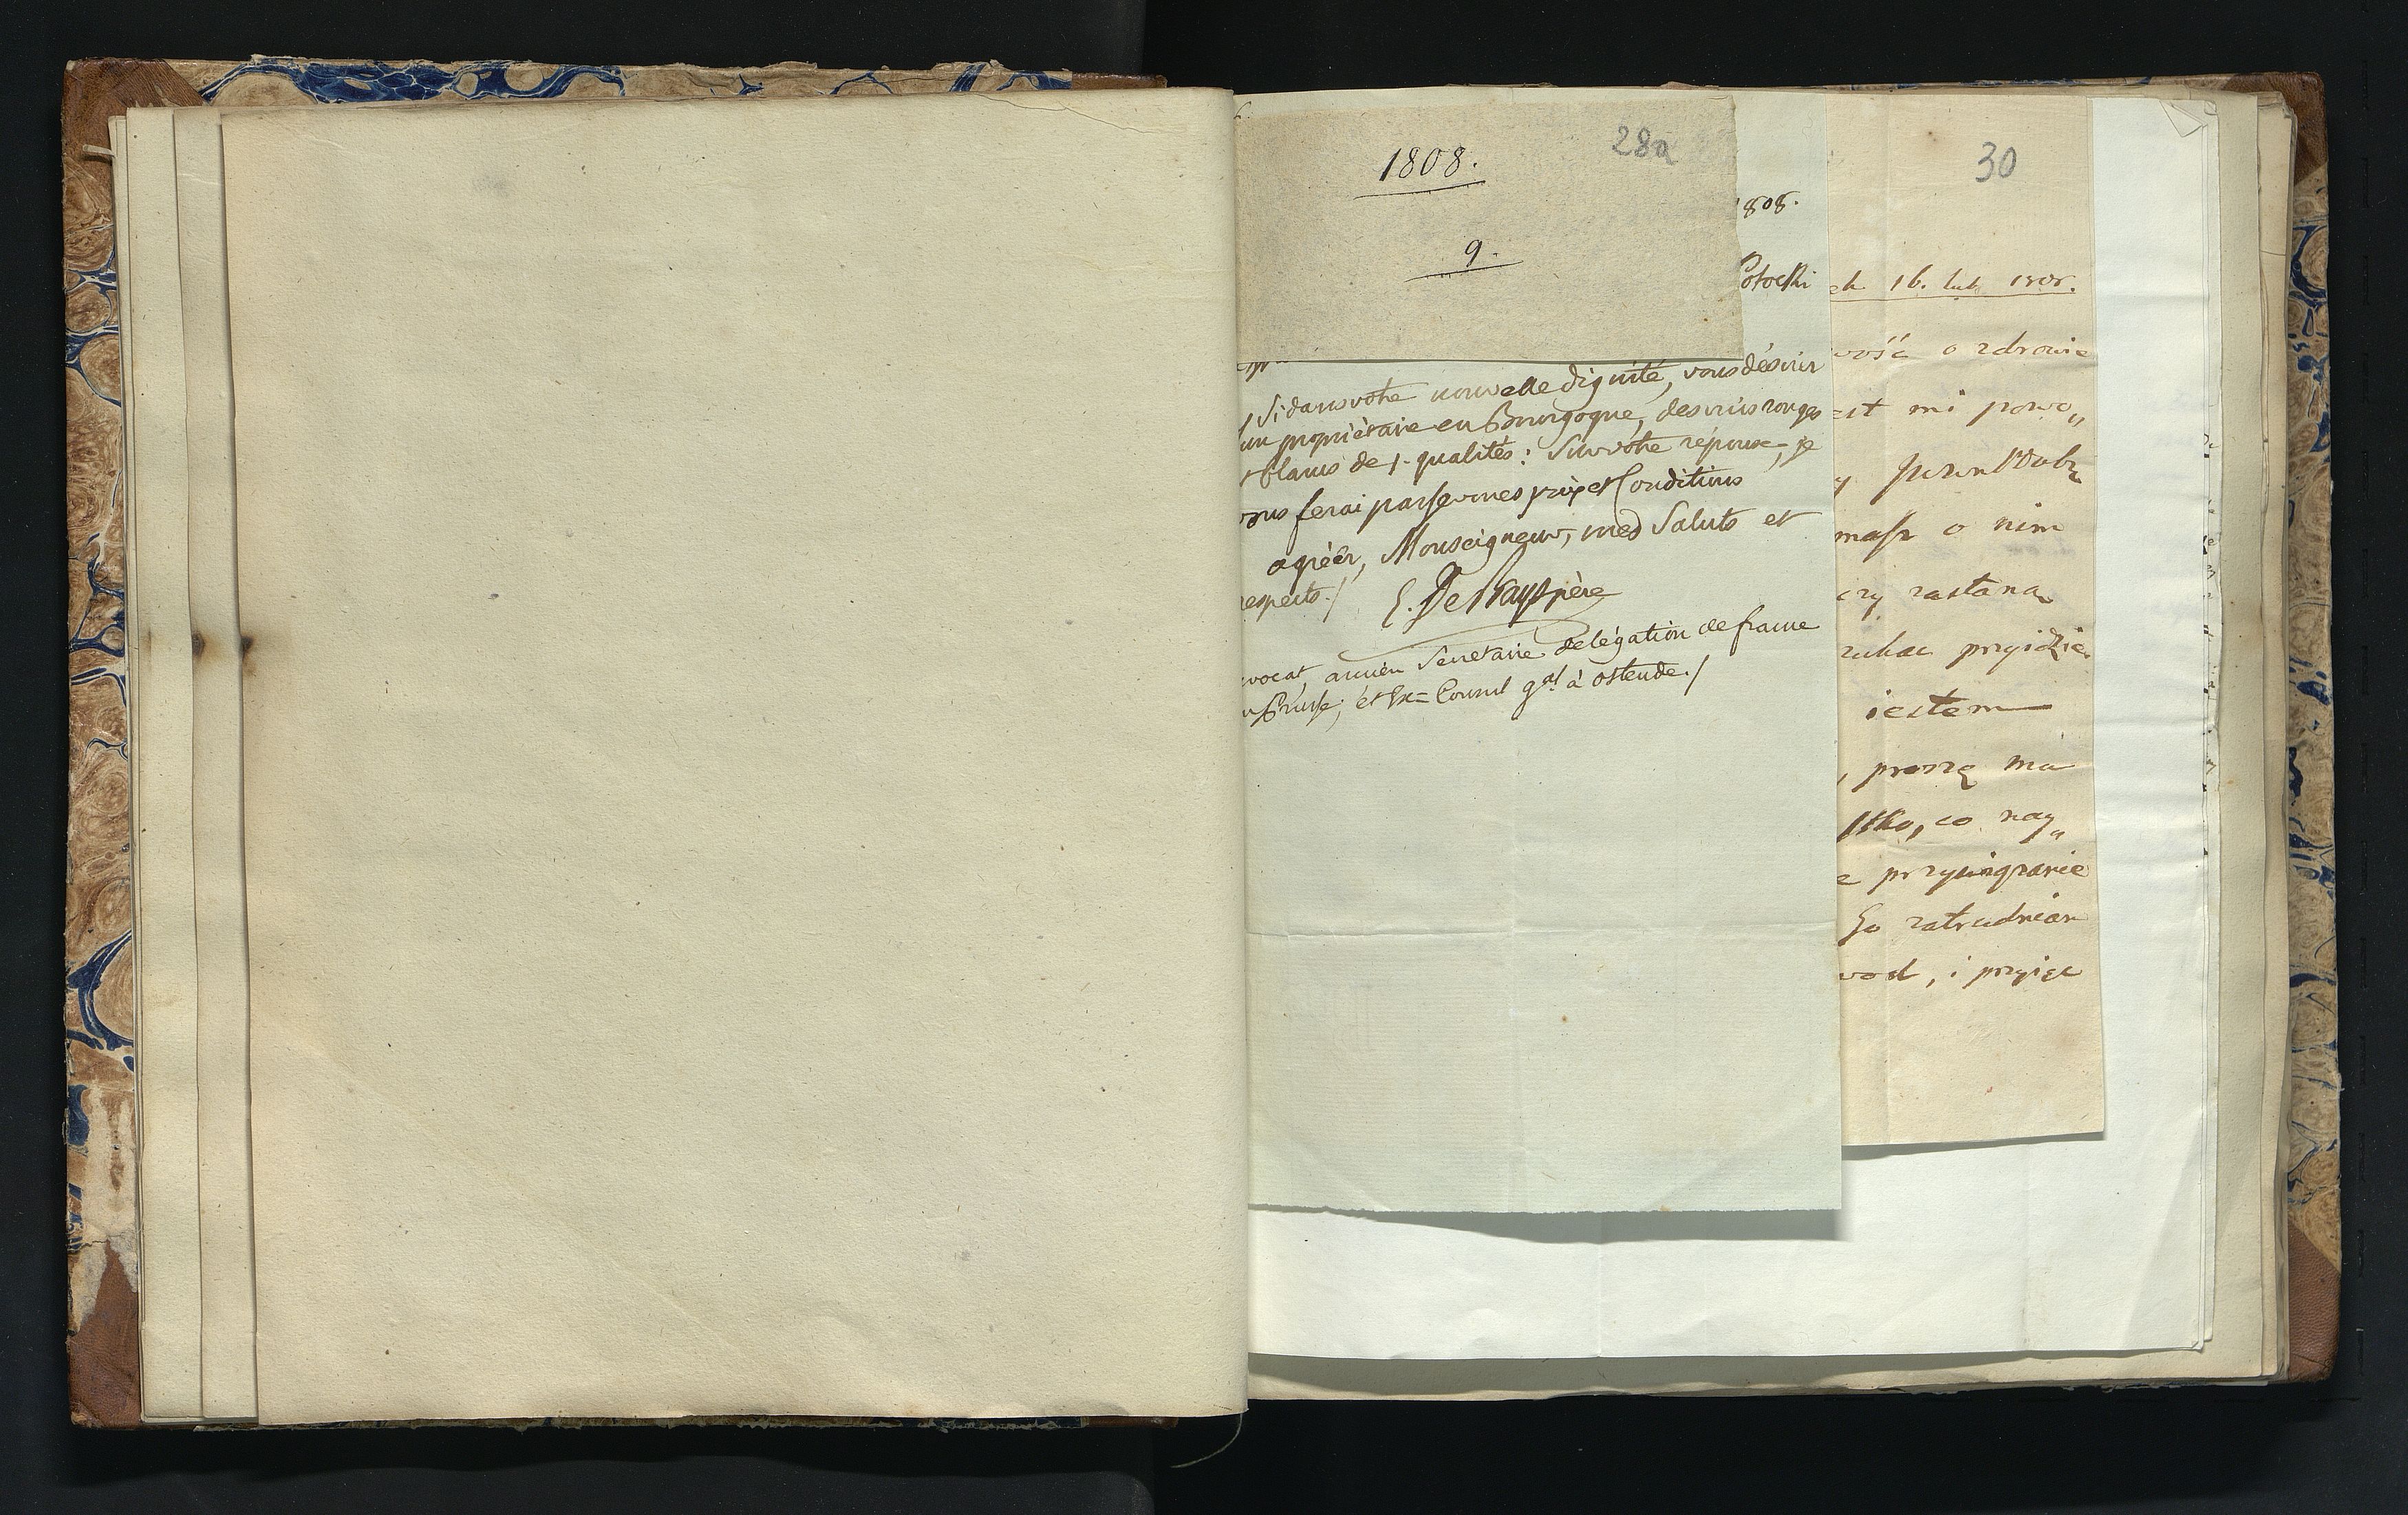 28a
1808.
9.
1808.
Potocki
Si dans votre nouvelle dignité, vous désirés
un propriétaire en Bourgogne, des vins rouges
t blancs de 1. qualités : Sur votre réponse, je
vous ferai passer mes prix et Conditions
agréér, Monseigneur, mes Saluts et
respects./
père
vocat, ancien Secretaire de légation de france
Prusse, et Ex= Consul g.al à Ostende./
30
16. lut. 1808.
wość o zdrowie
est mi powo„
masz o nim
czy zastana
przyidzie
iestem
, proszę ma
co nay„
Go zatrudniam
wod, i przyięc